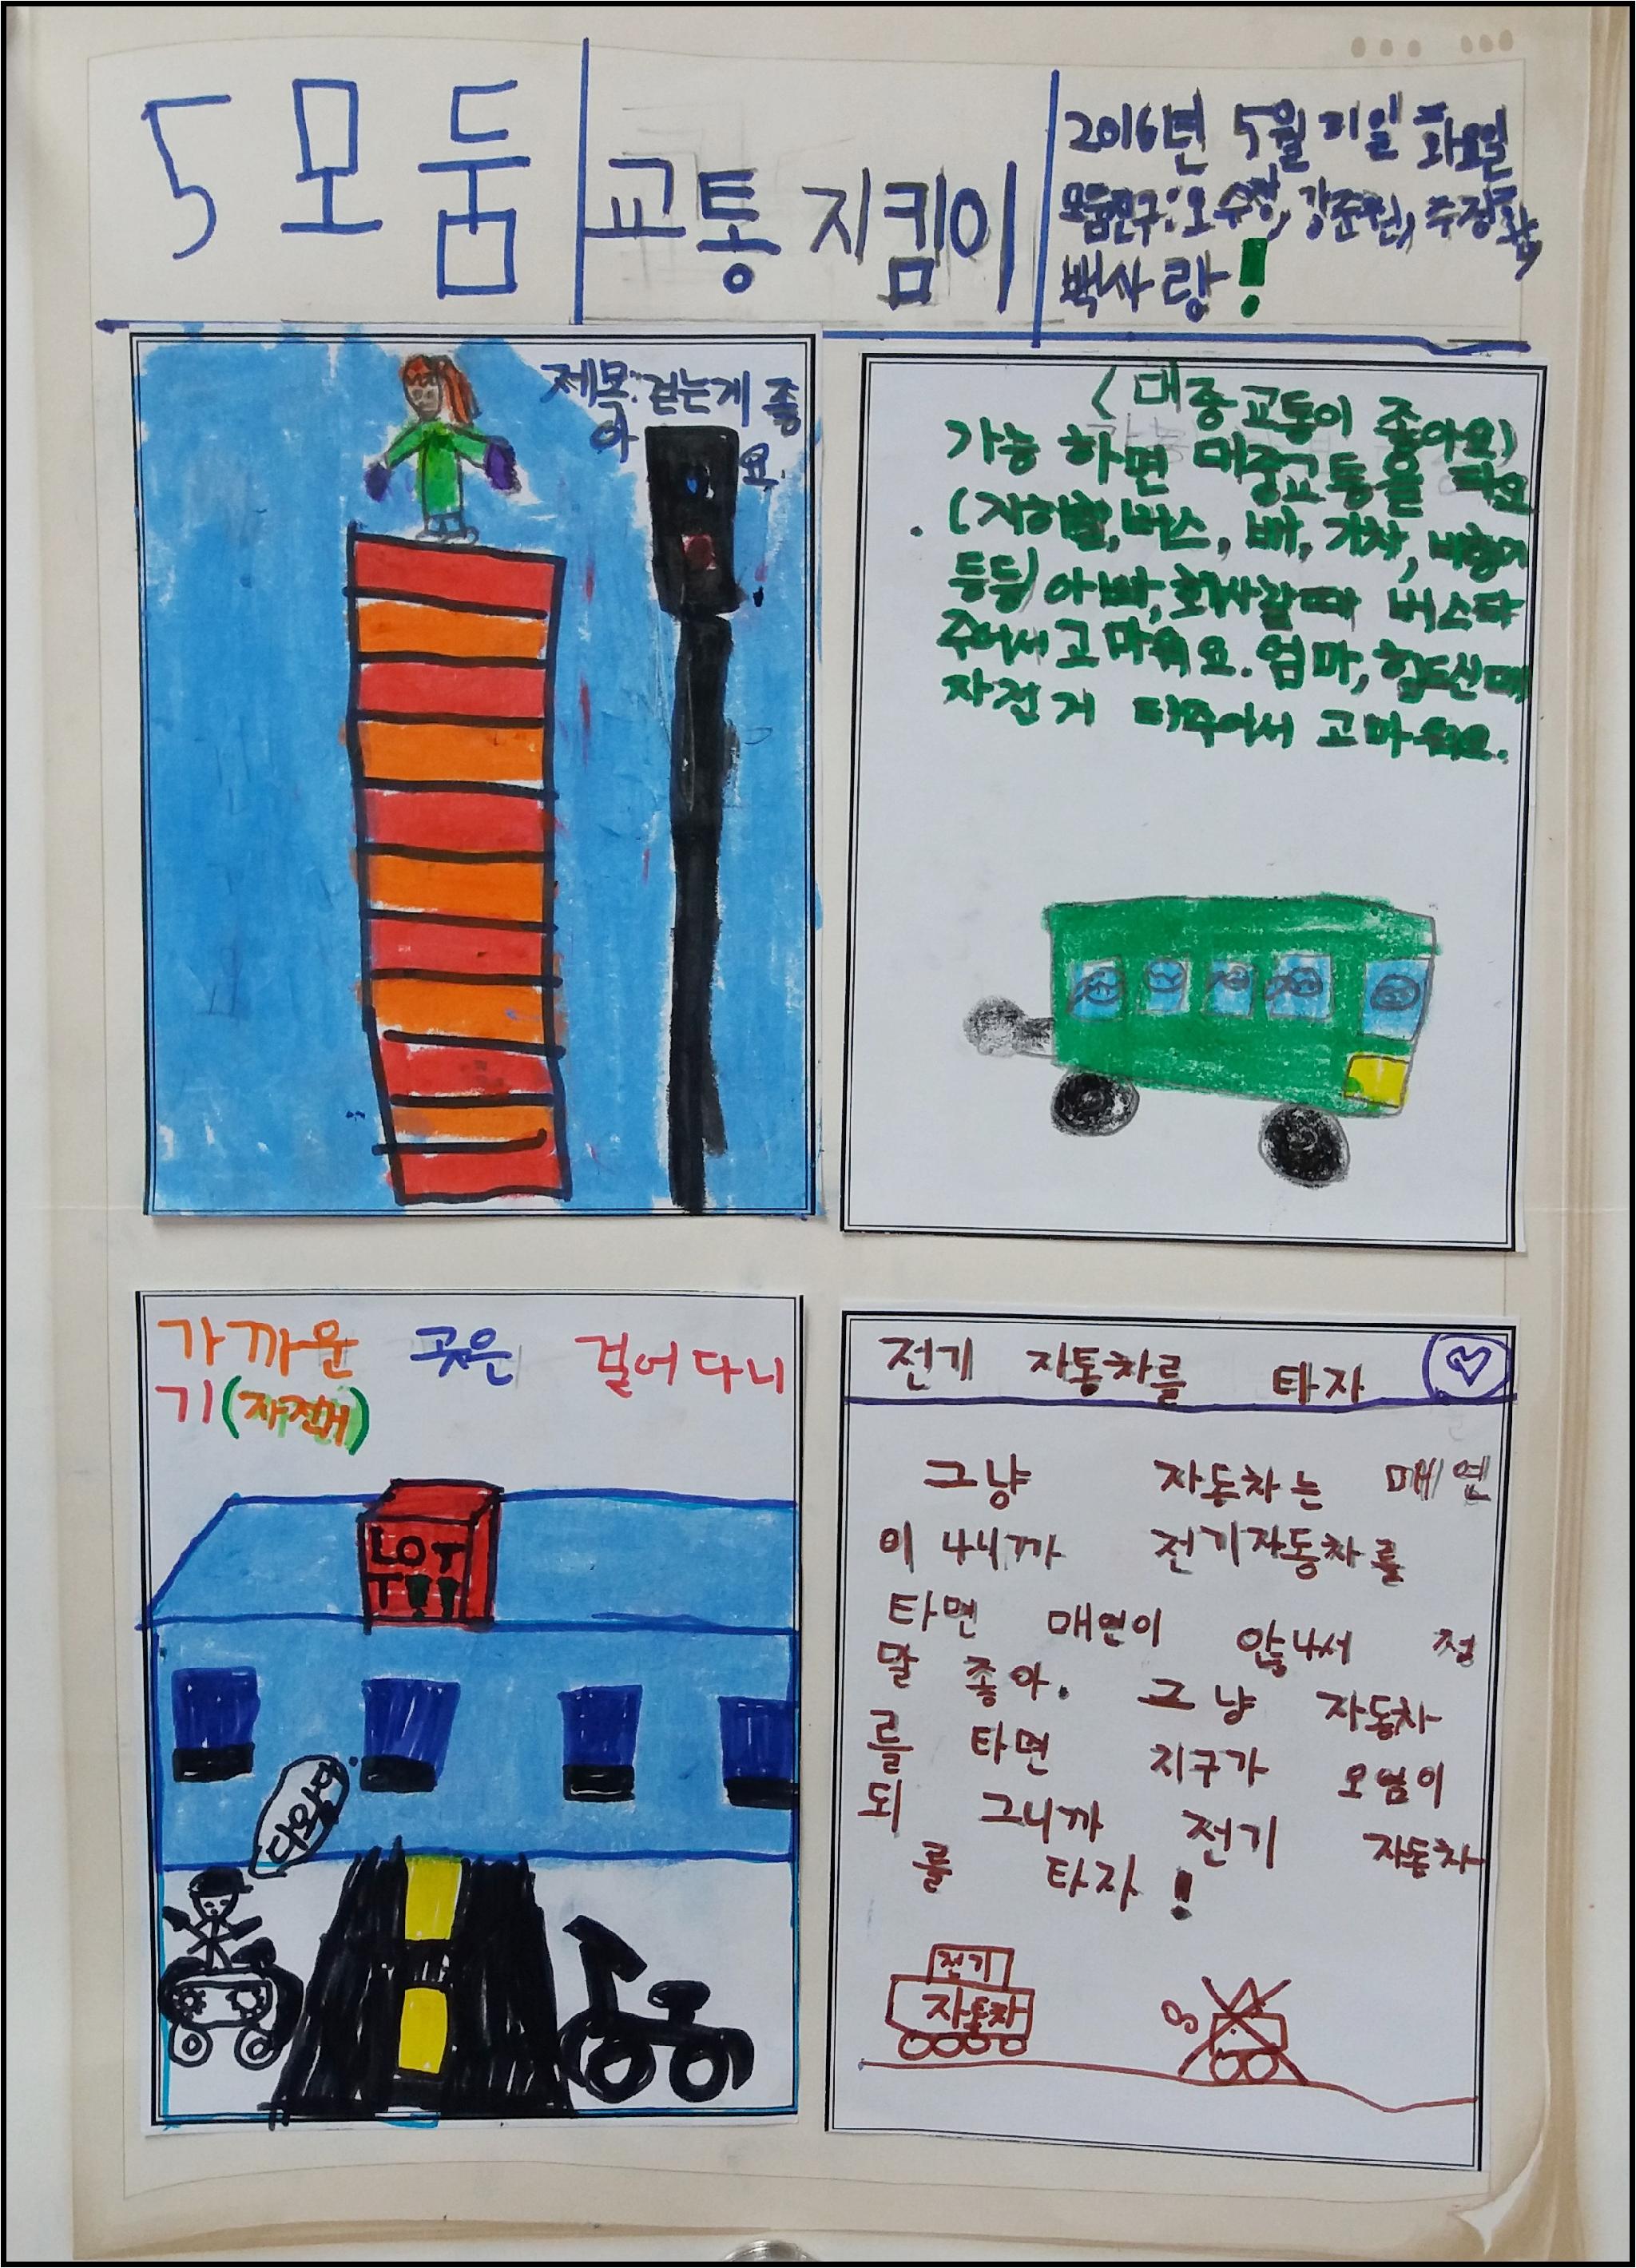 5모둠
교통 지킴이
2016년 5월 31일 화요일
모둠친구: 오수정, 강준원,
백사랑!
제목: 걷는게 좋
아
요.
<대중교통이 좋아요>
가능 하면 대중교통을 타요
. (지하철, 버스, 배, 기차, 비행기
등등) 아빠, 회사갈때 버스타
주어서 고마워요. 엄마, 힘드신데
자전거 타주어서 고마워요.
가까운 곳은 걸어다니
기(자전거)
LOT
T!!
다왔다
전기 자동차를 타자
그냥 자동차는 매연
이 나니까 전기자동차를
타면 매연이 않나서 정
말 좋아. 그냥 자동차
를 타면 지구가 오염이
되 그니까 전기 자동차
를 타자!
전기
자동차